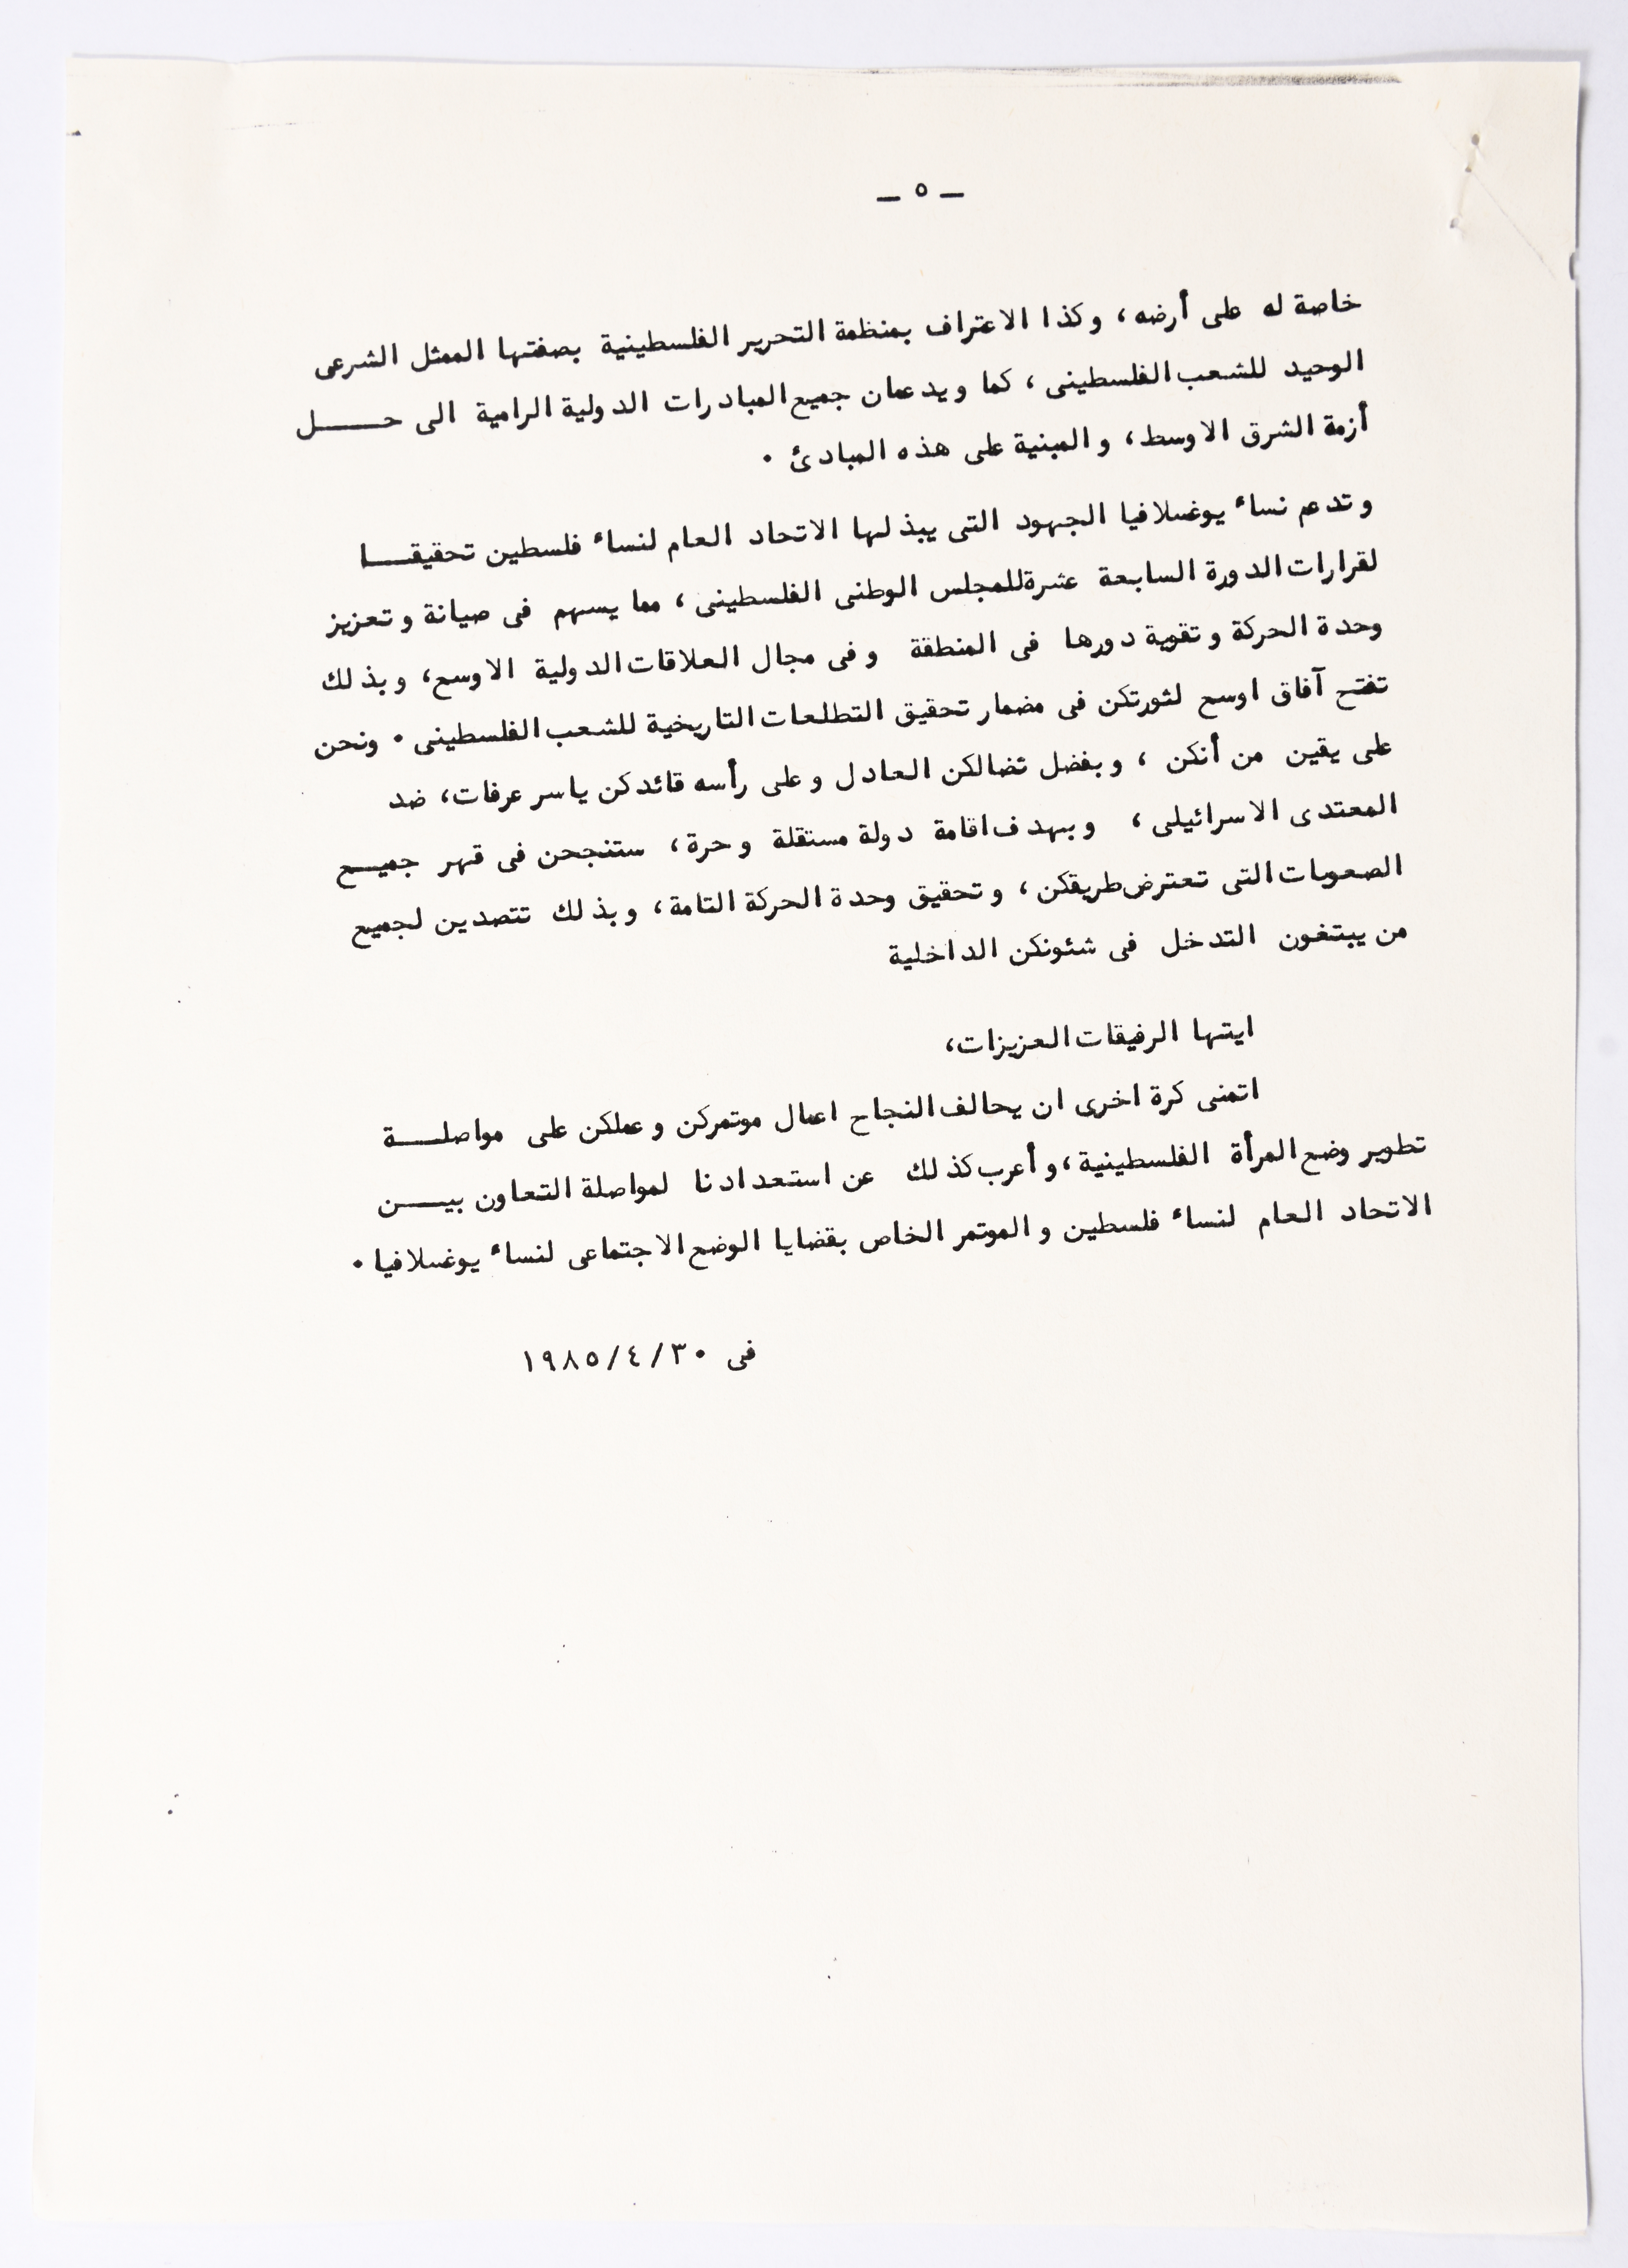 — ٥ —
خاصة له على أرضه، وكذا الاعتراف بمنظمة التحرير الفلسطينية بصفتها الممثل الشرعى
الوحيد للشعب الفلسطينى، كما ويدعمان جميع المبادرات الدولية الرامية الى حـــــل
أزمة الشرق الاوسط، والمبنية على هذه المبادئ .
وتدعم نساء يوغسلافيا الجهود التى يبذلها الاتحاد العام لنساء فلسطين تحقيقـــا
لقرارات الدورة السابعة عشرة للمجلس الوطنى الفلسطينى، مما يسهم فى صيانة وتعزيز
وحدة الحركة وتقوية دورها فى المنطقة وفى مجال العلاقات الدولية الاوسع، وبذلك
تفتح آفاق اوسع لثورتكن فى مضمار تحقيق التطلعات التاريخية للشعب الفلسطينى . ونحن
على يقين من أنكن ، وبفضل نضالكن العادل وعلى رأسه قائدكن ياسر عرفات، ضد
المعتدى الاسرائيلى، وبهدف اقامة دولة مستقلة وحرة، ستنجحن فى قهر جميـــع
الصعوبات التى تعترض طريقكن، وتحقيق وحدة الحركة التامة، وبذلك تتصدين لجميع
من يبتغون التدخل فى شئونكن الداخلية
ايتها الرفيقات العزيزات،
اتمنى كرة اخرى ان يحالف النجاح اعمال موتمركن وعملكن على مواصلـــة
تطوير وضع المرأة الفلسطينية، وأعرب كذلك عن استعدادنا لمواصلة التعاون بيـــن
الاتحاد العام لنساء فلسطين والموتمر الخاص بقضايا الوضع الاجتماعى لنساء يوغسلافيا .
فى ٣٠/٤/١٩٨٥